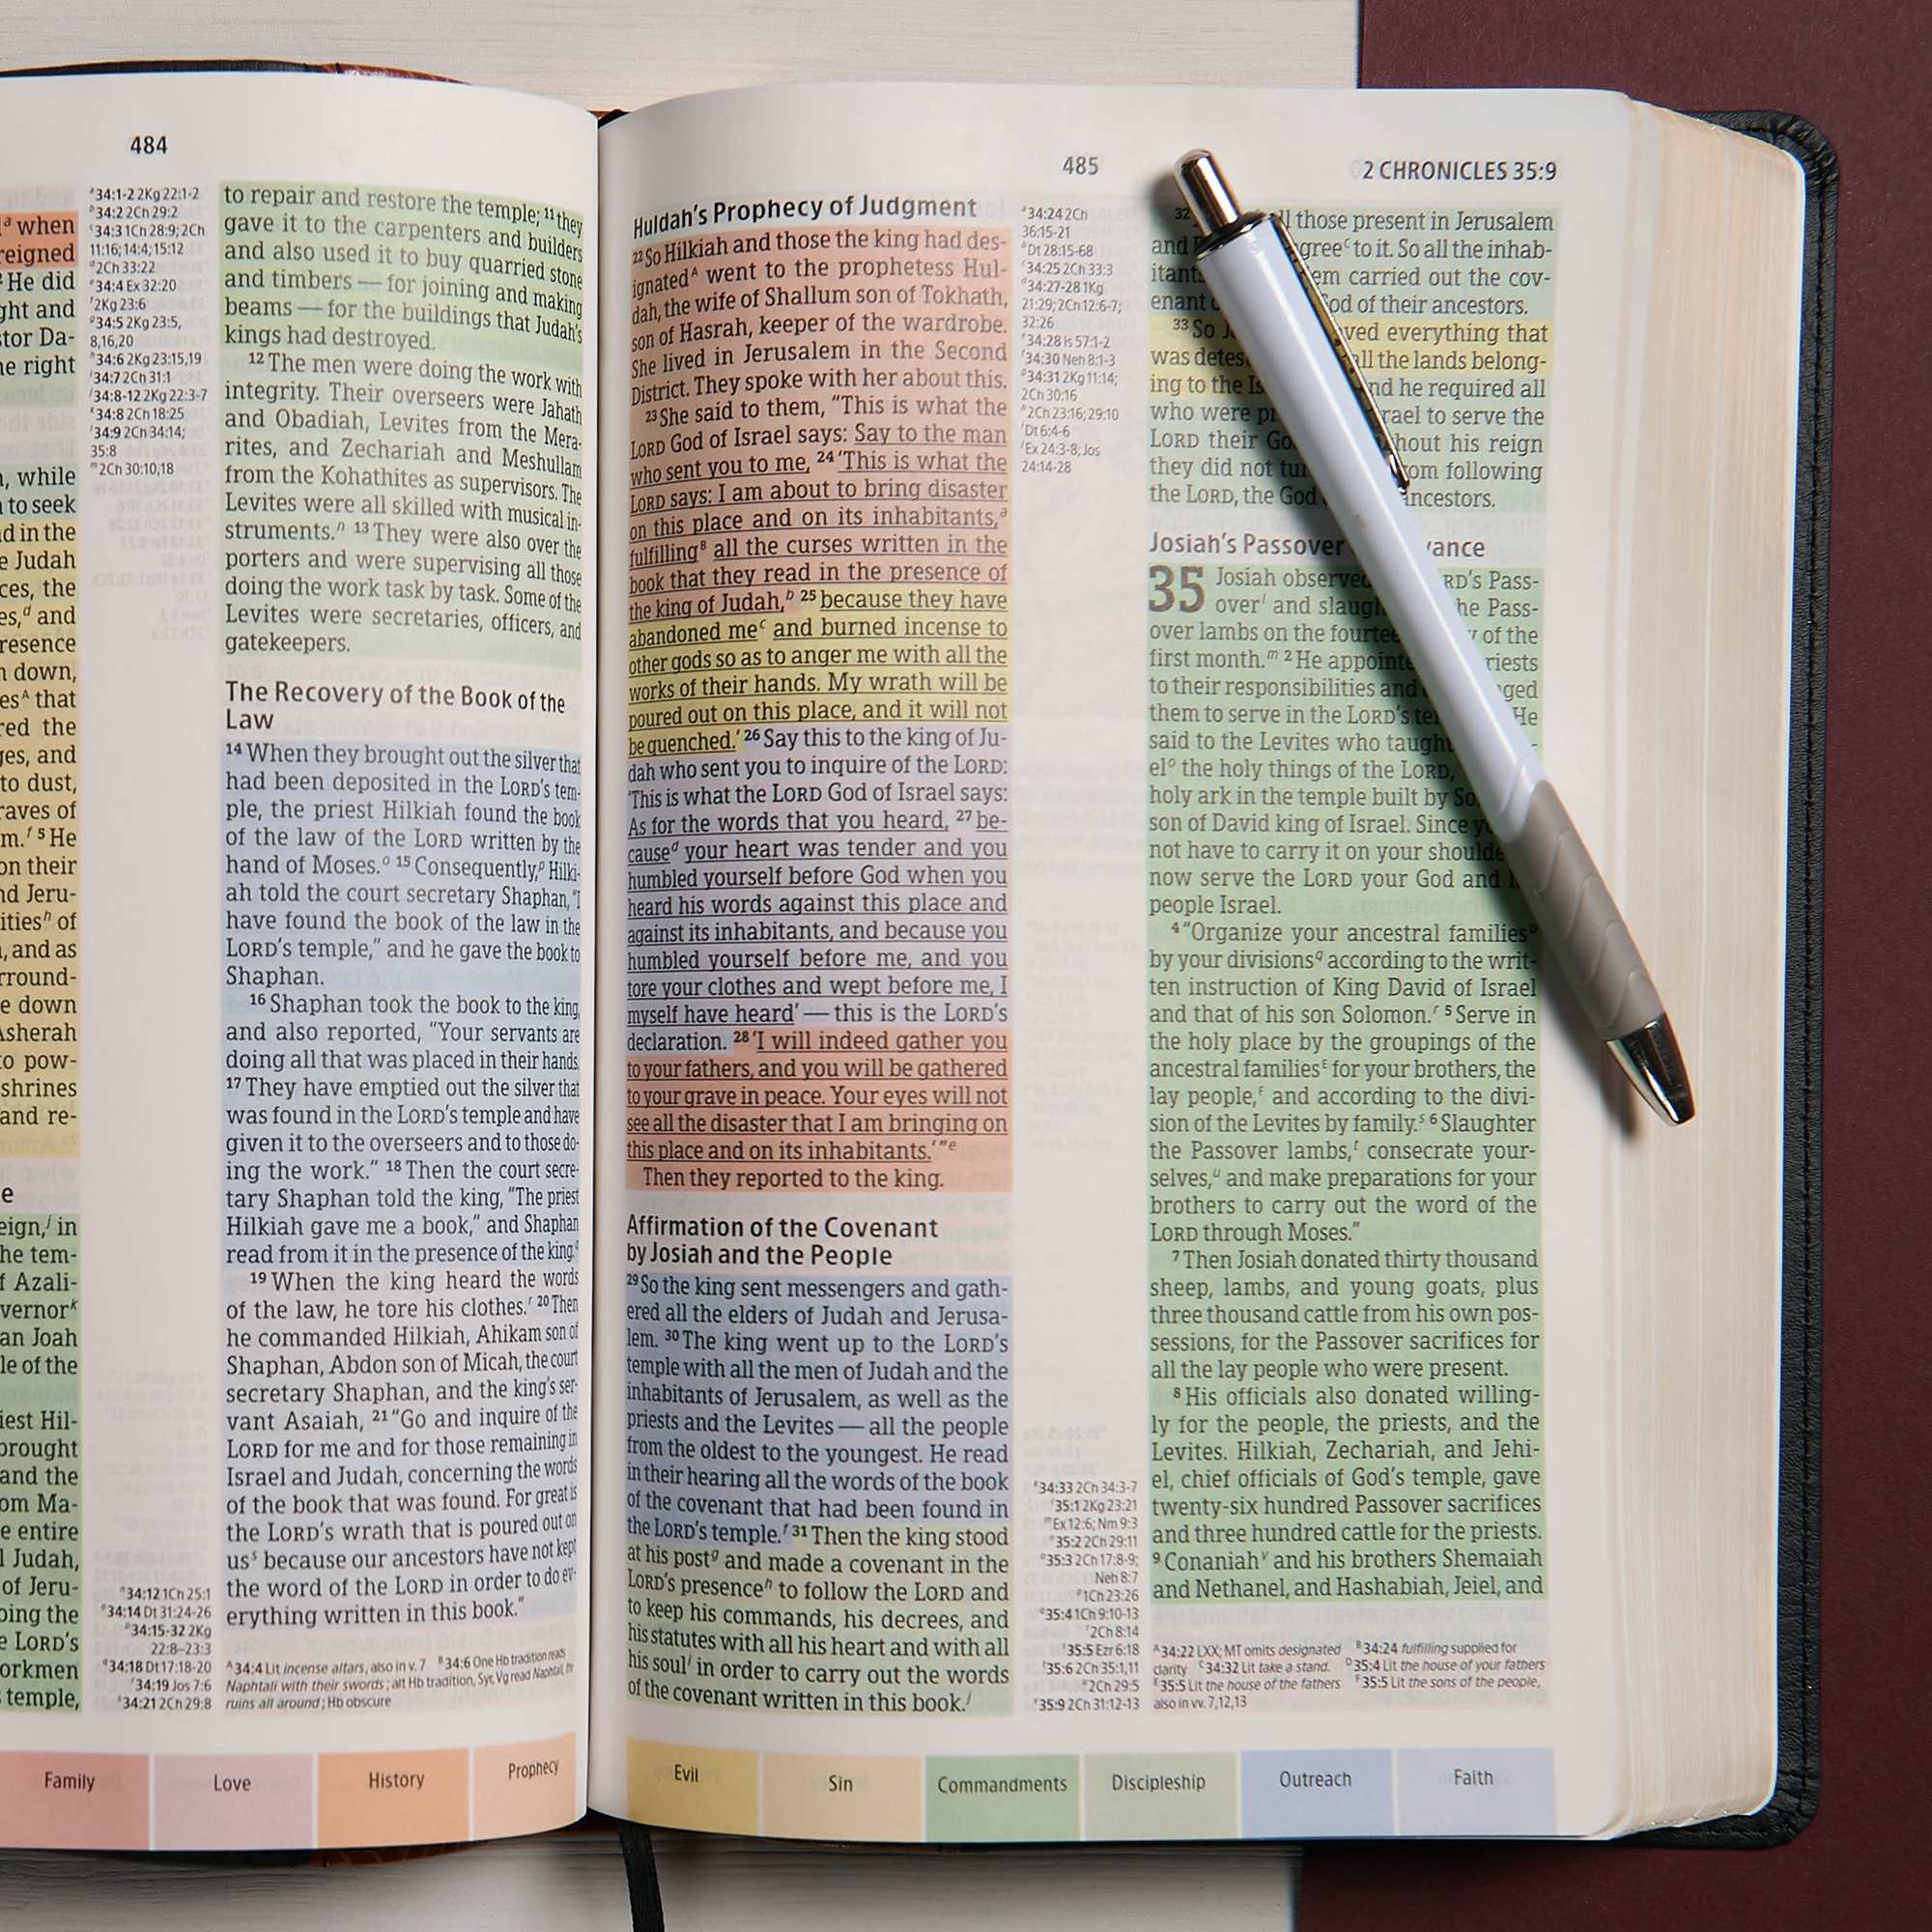 484
ᵃ when
reigned
He did
ght and
tor Da-
he right
, while
to seek
d in the
e Judah
ces, the
es,ᵈ and
resence
n down,
esᴬ that
red the
ges, and
to dust,
raves of
m.ᶠ ⁵ He
on their
nd Jeru-
itiesʰ of
, and as
rround-
e down
Asherah
to pow-
shrines
and re-
e
eign,ʲ in
he tem-
f Azali-
vernorᵏ
an Joah
le of the
iest Hil-
brought
and the
om Ma-
e entire
l Judah,
of Jeru-
oing the
e LORD'S
orkmen
temple,
ᵃ34:1-2 2Kg 22:1-2
ᵇ34:2 2Ch 29:2
ᶜ34:3 1Ch 28:9; 2Ch
11:16; 14:4; 15:12
ᵈ2Ch 33:22
ᵉ34:4 Ex 32:20
ᶠ2Kg 23:6
ᵍ34:5 2Kg 23:5,
8,16,20
ʰ34:6 2Kg 23:15,19
ⁱ34:7 2Ch 31:1
ʲ34:8-12 2Kg 22:3-7
ᵏ34:8 2Ch 18:25
ˡ34:9 2Ch 34:14;
35:8
ᵐ2Ch 30:10,18
ⁿ34:12 1Ch 25:1
ᵒ34:14 Dt 31:24-26
ᵖ34:15-32 2Kg
22:8–23:3
ᑫ34:18 Dt 17:18-20
ʳ34:19 Jos 7:6
ˢ34:21 2Ch 29:8
to repair and restore the temple; ¹¹ they
gave it to the carpenters and builders
and also used it to buy quarried stone
and timbers — for joining and making
beams — for the buildings that Judah's
kings had destroyed.
¹² The men were doing the work with
integrity. Their overseers were Jahath
and Obadiah, Levites from the Mera-
rites, and Zechariah and Meshullam
from the Kohathites as supervisors. The
Levites were all skilled with musical in-
struments.ⁿ ¹³ They were also over the
porters and were supervising all those
doing the work task by task. Some of the
Levites were secretaries, officers, and
gatekeepers.
The Recovery of the Book of the
Law
¹⁴ When they brought out the silver that
had been deposited in the LORD's tem-
ple, the priest Hilkiah found the book
of the law of the LORD written by the
hand of Moses.ᵒ ¹⁵ Consequently,ᵖ Hilki-
ah told the court secretary Shaphan, "I
have found the book of the law in the
LORD's temple," and he gave the book to
Shaphan.
¹⁶ Shaphan took the book to the king,
and also reported, "Your servants are
doing all that was placed in their hands.
¹⁷ They have emptied out the silver that
was found in the LORD's temple and have
given it to the overseers and to those do-
ing the work." ¹⁸ Then the court secre-
tary Shaphan told the king, "The priest
Hilkiah gave me a book," and Shaphan
read from it in the presence of the king.ᑫ
¹⁹ When the king heard the words
of the law, he tore his clothes.ʳ ²⁰ Then
he commanded Hilkiah, Ahikam son of
Shaphan, Abdon son of Micah, the court
secretary Shaphan, and the king's ser-
vant Asaiah, ²¹ "Go and inquire of the
LORD for me and for those remaining in
Israel and Judah, concerning the words
of the book that was found. For great is
the LORD's wrath that is poured out on
usˢ because our ancestors have not kept
the word of the LORD in order to do ev-
erything written in this book."
ᴬ34:4 Lit incense altars, also in v. 7 ᴮ34:6 One Hb tradition reads
Naphtali with their swords; alt Hb tradition, Syr, Vg read Naphtali, the
ruins all around; Hb obscure
Family
Love
History
Prophecy
485
2 CHRONICLES 35:9
Huldah's Prophecy of Judgment
²² So Hilkiah and those the king had des-
ignatedᴬ went to the prophetess Hul-
dah, the wife of Shallum son of Tokhath,
son of Hasrah, keeper of the wardrobe.
She lived in Jerusalem in the Second
District. They spoke with her about this.
²³ She said to them, "This is what the
LORD God of Israel says: Say to the man
who sent you to me, ²⁴ 'This is what the
LORD says: I am about to bring disaster
on this place and on its inhabitants,ᵃ
fulfillingᴮ all the curses written in the
book that they read in the presence of
the king of Judah,ᵇ ²⁵ because they have
abandoned meᶜ and burned incense to
other gods so as to anger me with all the
works of their hands. My wrath will be
poured out on this place, and it will not
be quenched.' ²⁶ Say this to the king of Ju-
dah who sent you to inquire of the LORD:
'This is what the LORD God of Israel says:
As for the words that you heard, ²⁷ be-
causeᵈ your heart was tender and you
humbled yourself before God when you
heard his words against this place and
against its inhabitants, and because you
humbled yourself before me, and you
tore your clothes and wept before me, I
myself have heard' — this is the LORD's
declaration. ²⁸ 'I will indeed gather you
to your fathers, and you will be gathered
to your grave in peace. Your eyes will not
see all the disaster that I am bringing on
this place and on its inhabitants.' "ᵉ
Then they reported to the king.
Affirmation of the Covenant
by Josiah and the People
²⁹ So the king sent messengers and gath-
ered all the elders of Judah and Jerusa-
lem. ³⁰ The king went up to the LORD's
temple with all the men of Judah and the
inhabitants of Jerusalem, as well as the
priests and the Levites — all the people
from the oldest to the youngest. He read
in their hearing all the words of the book
of the covenant that had been found in
the LORD's temple.ᶠ ³¹ Then the king stood
at his postᵍ and made a covenant in the
LORD's presenceʰ to follow the LORD and
to keep his commands, his decrees, and
his statutes with all his heart and with all
his soulⁱ in order to carry out the words
of the covenant written in this book.ʲ
ᵃ34:24 2Ch
36:15-21
ᵇDt 28:15-68
ᶜ34:25 2Ch 33:3
ᵈ34:27-28 1Kg
21:29; 2Ch 12:6-7;
32:26
ᵉ34:28 Is 57:1-2
ᶠ34:30 Neh 8:1-3
ᵍ34:31 2Kg 11:14;
2Ch 30:16
ʰ2Ch 23:16; 29:10
ⁱDt 6:4-6
ʲEx 24:3-8; Jos
24:14-28
ᵏ34:33 2Ch 34:3-7
ˡ35:1 2Kg 23:21
ᵐEx 12:6; Nm 9:3
ⁿ35:2 2Ch 29:11
ᵒ35:3 2Ch 17:8-9;
Neh 8:7
ᵖ1Ch 23:26
ᑫ35:4 1Ch 9:10-13
ʳ2Ch 8:14
ˢ35:5 Ezr 6:18
ᵗ35:6 2Ch 35:1,11
ᵘ2Ch 29:5
ᵛ35:9 2Ch 31:12-13
³² ll those present in Jerusalem
and greeᶜ to it. So all the inhab-
itants em carried out the cov-
enant od of their ancestors.
³³ So ved everything that
was detes all the lands belong-
ing to the Is nd he required all
who were pr rael to serve the
LORD their Go hout his reign
they did not tur om following
the LORD, the God ancestors.
Josiah's Passover vance
35 Josiah observed RD's Pass-
overˡ and slaugh he Pass-
over lambs on the fourtee y of the
first month.ᵐ ² He appointe riests
to their responsibilities and ged
them to serve in the LORD's te He
said to the Levites who taught -
elᵒ the holy things of the LORD,
holy ark in the temple built by So
son of David king of Israel. Since y
not have to carry it on your shoulde
now serve the LORD your God and
people Israel.
⁴ "Organize your ancestral familiesᴰ
by your divisionsᑫ according to the writ-
ten instruction of King David of Israel
and that of his son Solomon.ʳ ⁵ Serve in
the holy place by the groupings of the
ancestral familiesᴱ for your brothers, the
lay people,ᶠ and according to the divi-
sion of the Levites by family.ˢ ⁶ Slaughter
the Passover lambs,ᵗ consecrate your-
selves,ᵘ and make preparations for your
brothers to carry out the word of the
LORD through Moses."
⁷ Then Josiah donated thirty thousand
sheep, lambs, and young goats, plus
three thousand cattle from his own pos-
sessions, for the Passover sacrifices for
all the lay people who were present.
⁸ His officials also donated willing-
ly for the people, the priests, and the
Levites. Hilkiah, Zechariah, and Jehi-
el, chief officials of God's temple, gave
twenty-six hundred Passover sacrifices
and three hundred cattle for the priests.
⁹ Conaniahᵛ and his brothers Shemaiah
and Nethanel, and Hashabiah, Jeiel, and
ᴬ34:22 LXX; MT omits designated ᴮ34:24 fulfilling supplied for
clarity ᶜ34:32 Lit take a stand. ᴰ35:4 Lit the house of your fathers
ᴱ35:5 Lit the house of the fathers ᶠ35:5 Lit the sons of the people,
also in vv. 7,12,13
Evil
Sin
Commandments
Discipleship
Outreach
Faith